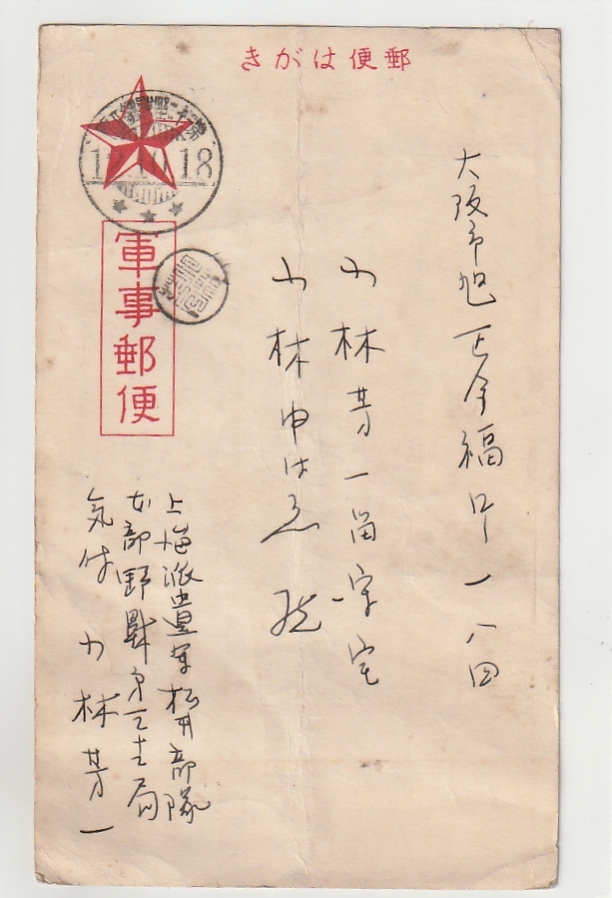 きがは便郵
12.10.18
軍事郵便
大阪市旭区今福町一一八四
小林芳一留守宅
小林
上海派遣軍松井部隊
本部野戦第
局
気付 小林芳一